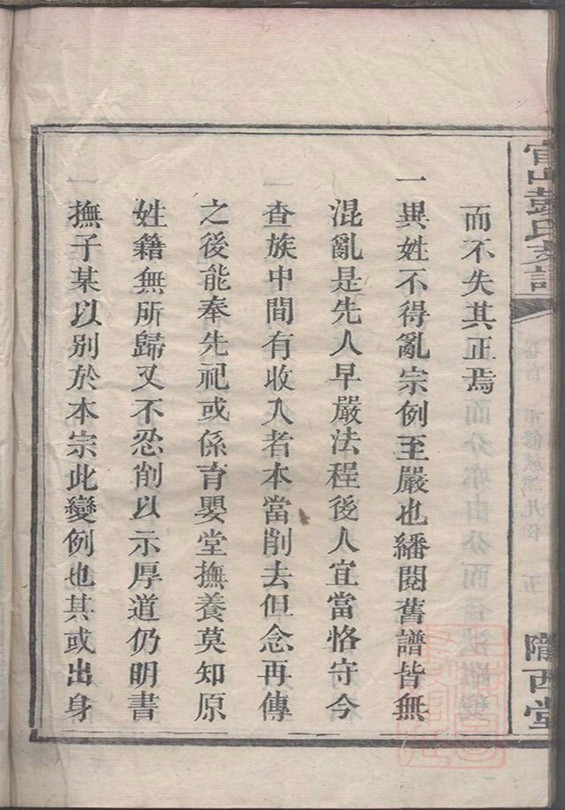 官山彭氏支譜
五
隴西堂
而不失其正焉
一異姓不得亂宗例至嚴也繙閱舊譜皆無
混亂是先人早嚴法程後人宜當恪守今
查族中間有收入者本當削去但念再傳
之後能奉先祀或係育嬰堂撫養莫知原
姓籍無所歸又不忍削以示厚道仍明書
撫子某以别於本宗此變例也其或出身